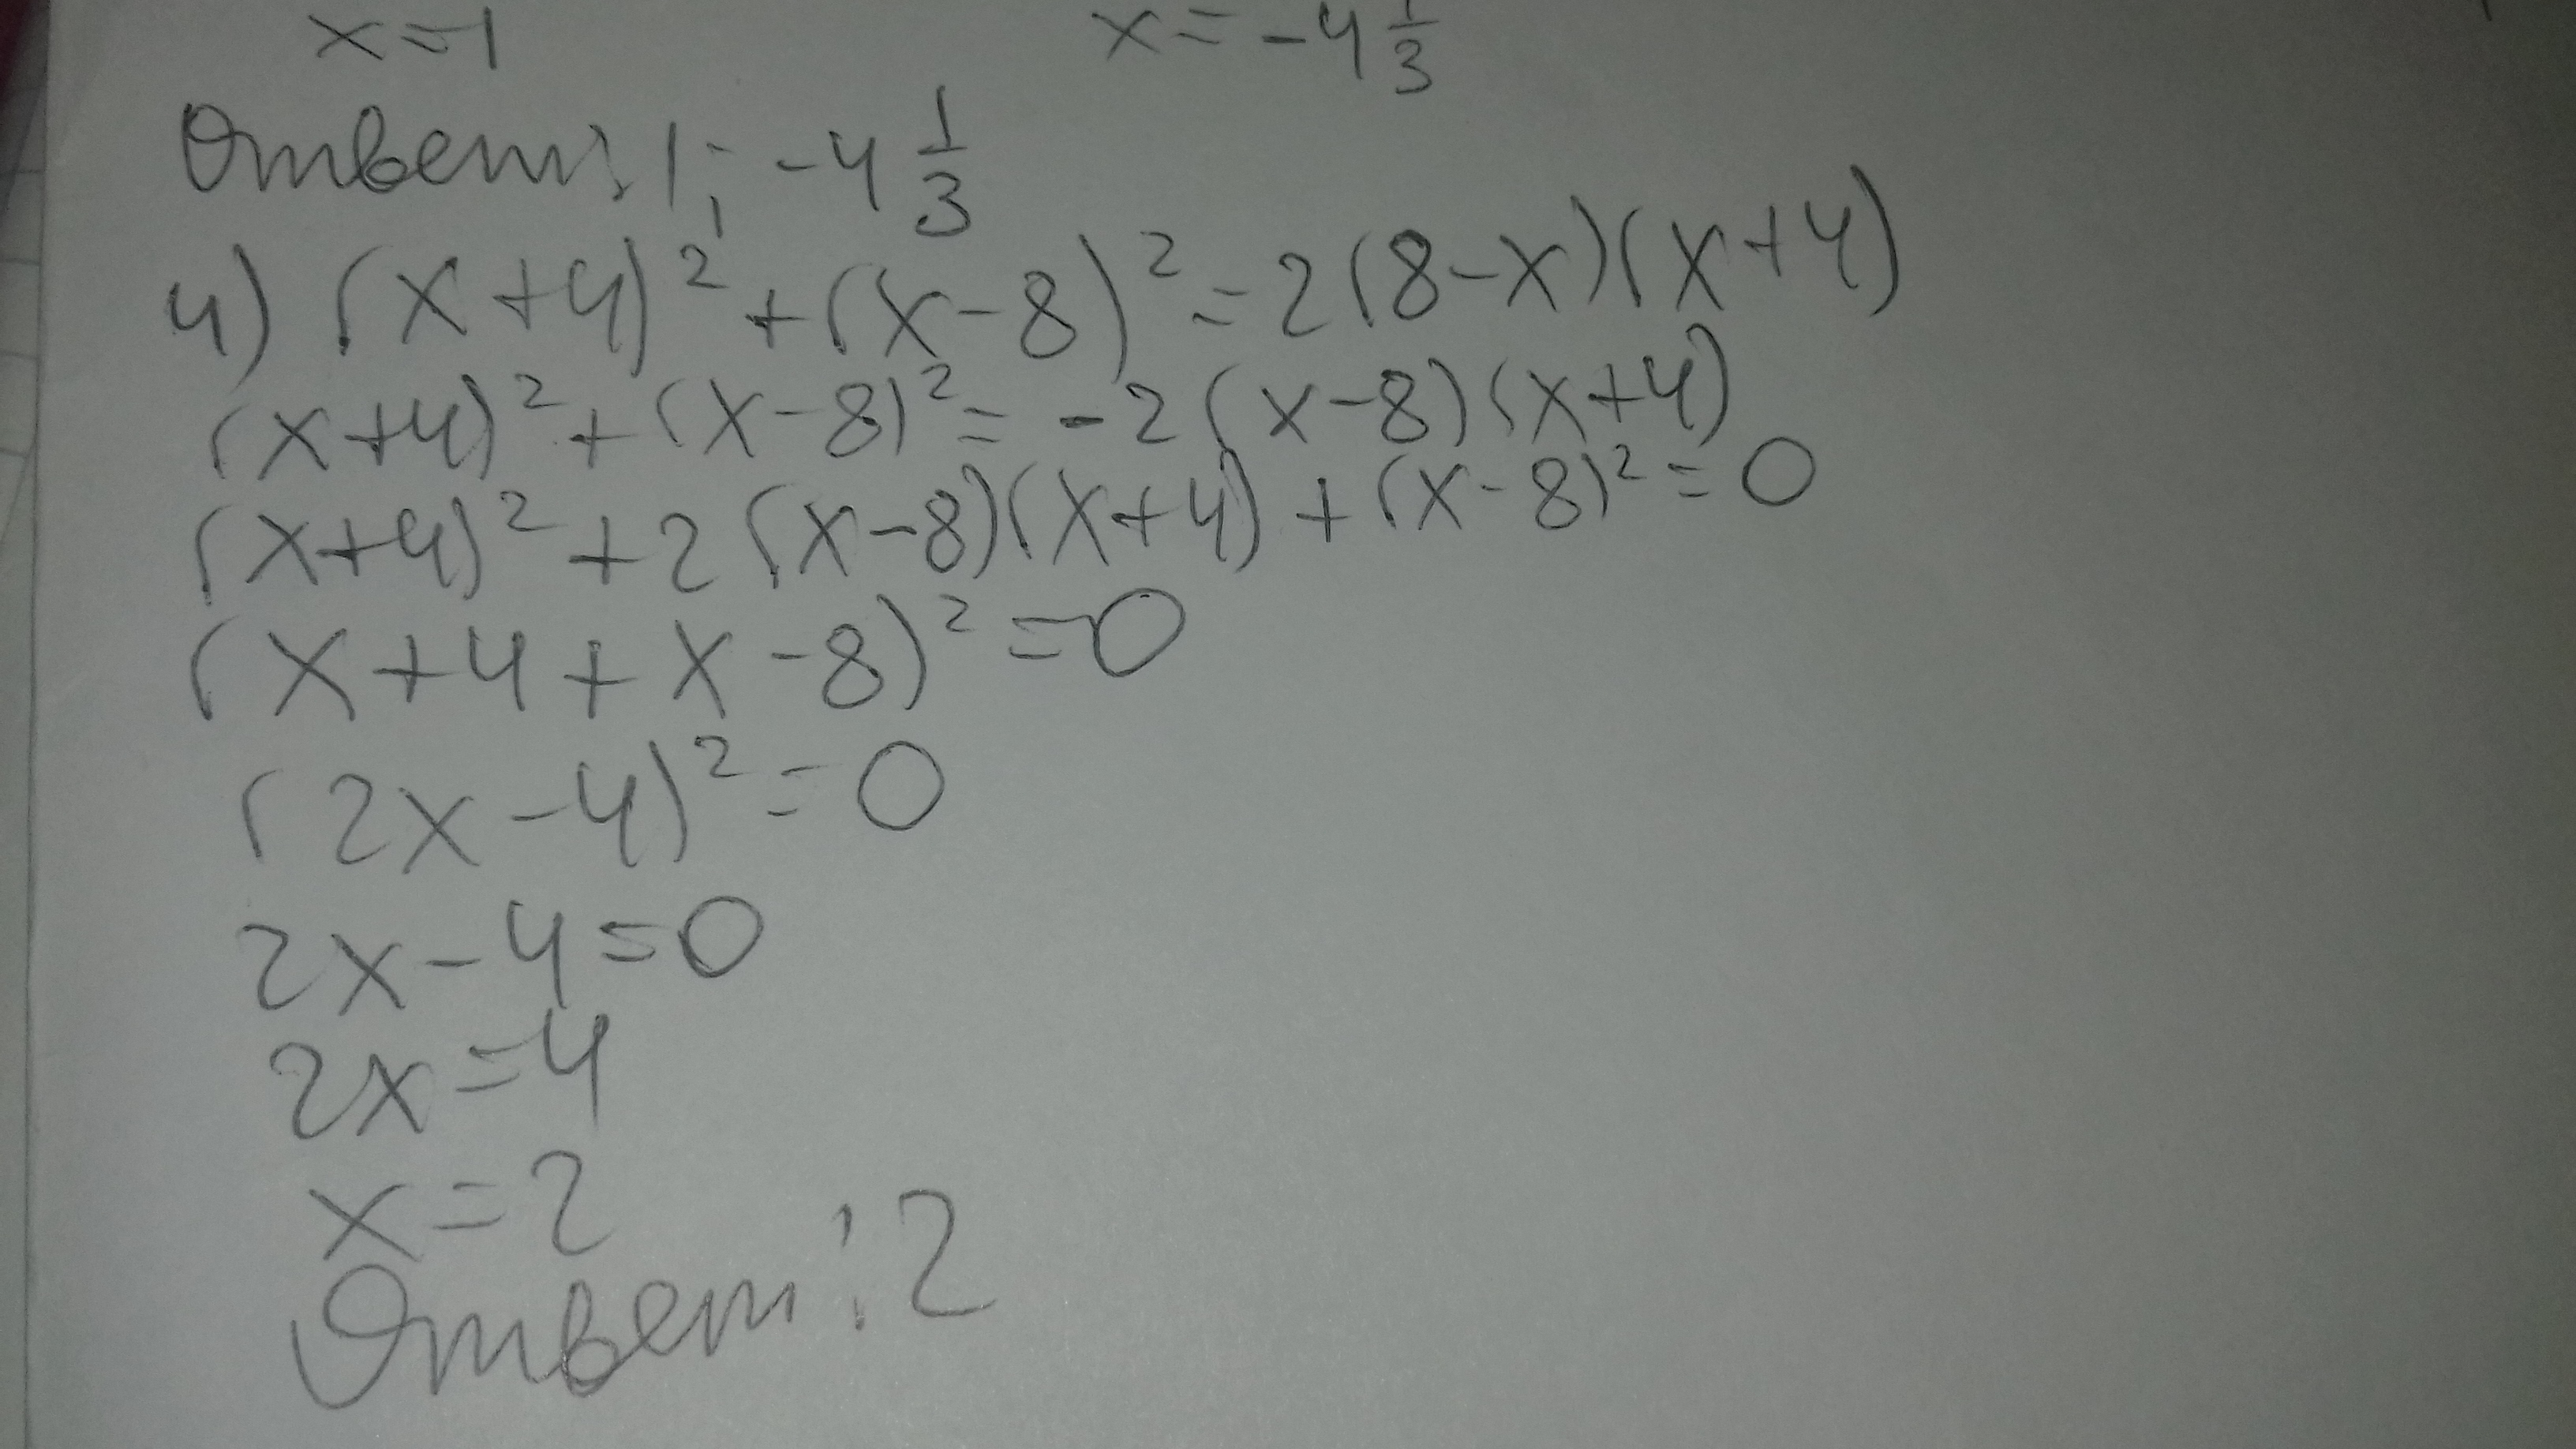 x=1 x=-4 1/3
Ответ: 1; -4 1/3
4) (x+4)²+(x-8)²=2(8-x)(x+4)
(x+4)²+(x-8)²=-2(x-8)(x+4)
(x+4)²+2(x-8)(x+4)+(x-8)²=0
(x+4+x-8)²=0
(2x-4)²=0
2x-4=0
2x=4
x=2
Ответ: 2